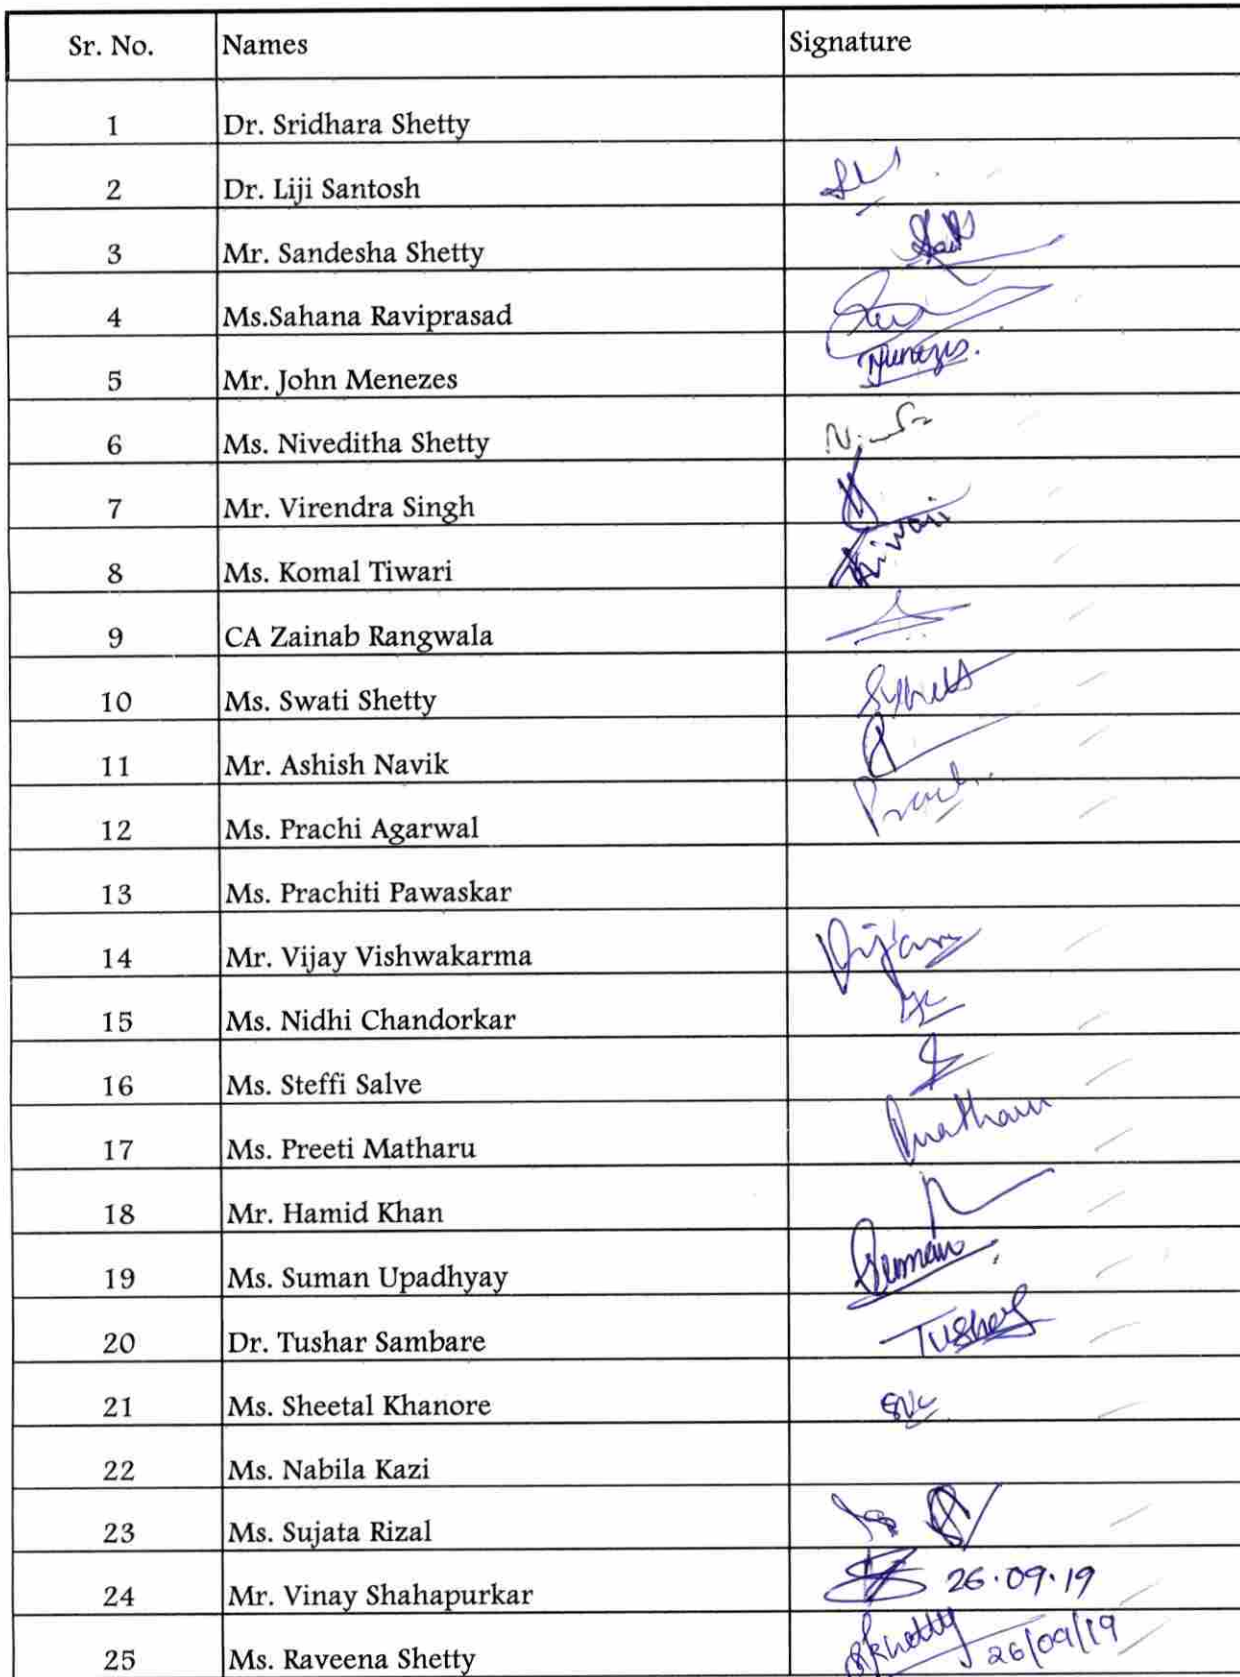 Sr. No. Names Signature
1 Dr. Sridhara Shetty
2 Dr. Liji Santosh
3 Mr. Sandesha Shetty
4 Ms.Sahana Raviprasad
5 Mr. John Menezes
6 Ms. Niveditha Shetty
7 Mr. Virendra Singh
8 Ms. Komal Tiwari Tiwari
9 CA Zainab Rangwala
10 Ms. Swati Shetty
11 Mr. Ashish Navik
12 Ms. Prachi Agarwal
13 Ms. Prachiti Pawaskar
14 Mr. Vijay Vishwakarma
15 Ms. Nidhi Chandorkar
16 Ms. Steffi Salve
17 Ms. Preeti Matharu
18 Mr. Hamid Khan
19 Ms. Suman Upadhyay Suman
20 Dr. Tushar Sambare Tushar
21 Ms. Sheetal Khanore
22 Ms. Nabila Kazi
23 Ms. Sujata Rizal
24 Mr. Vinay Shahapurkar 26.09.19
25 Ms. Raveena Shetty 26/09/19